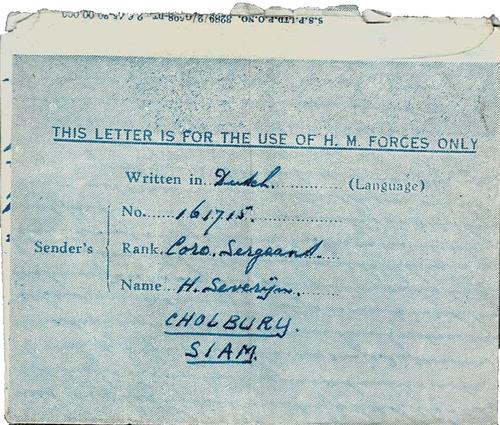 S.S.P.LTD.P.O.NO. 8289/2/G598
THIS LETTER IS FOR THE USE OF H. M. FORCES ONLY
Written in Dutch. (Language)
No. 161715.
Sender's
Rank. Coro. Sergeant.
Name. H. Severijn.
CHOLBURY.
SIAM.